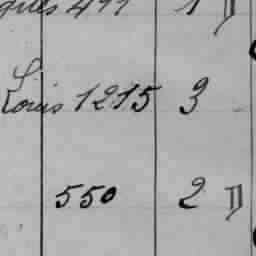 ques 499 1 D
St Louis 1215 3
550 2 D